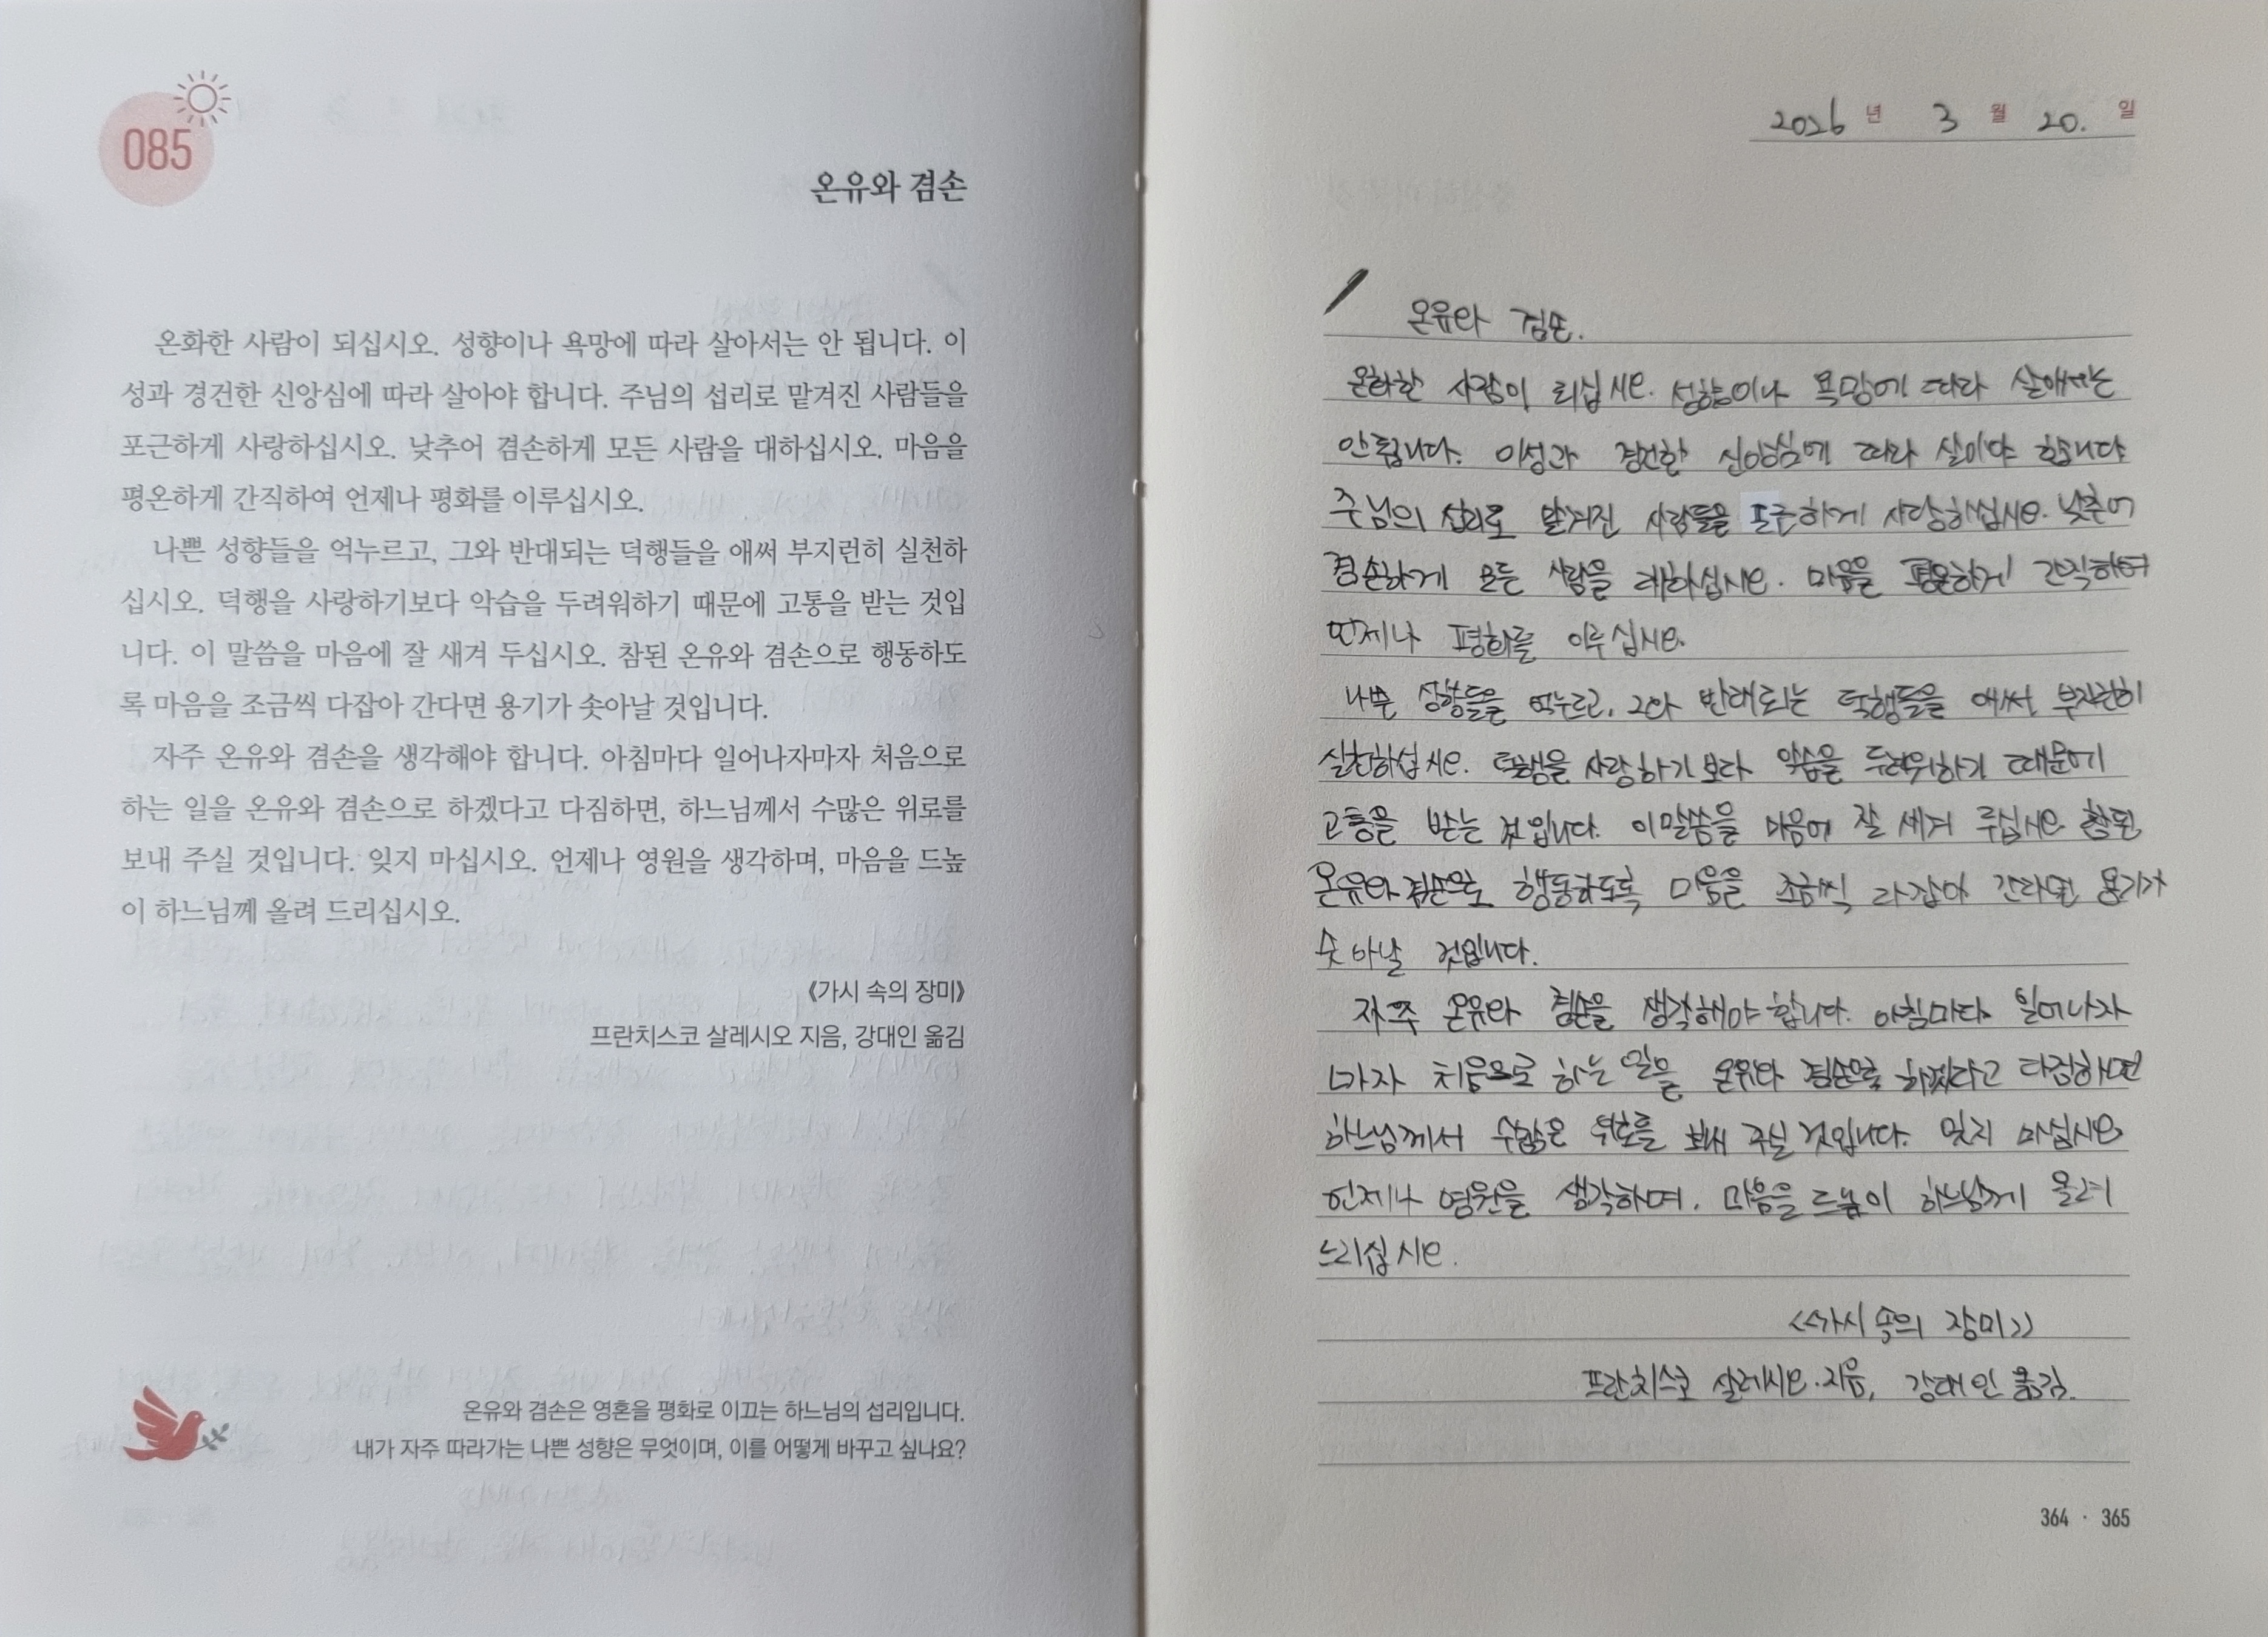 085
온유와 겸손
온화한 사람이 되십시오. 성향이나 욕망에 따라 살아서는 안 됩니다. 이
성과 경건한 신앙심에 따라 살아야 합니다. 주님의 섭리로 맡겨진 사람들을
포근하게 사랑하십시오. 낮추어 겸손하게 모든 사람을 대하십시오. 마음을
평온하게 간직하여 언제나 평화를 이루십시오.
나쁜 성향들을 억누르고, 그와 반대되는 덕행들을 애써 부지런히 실천하
십시오. 덕행을 사랑하기보다 악습을 두려워하기 때문에 고통을 받는 것입
니다. 이 말씀을 마음에 잘 새겨 두십시오. 참된 온유와 겸손으로 행동하도
록 마음을 조금씩 다잡아 간다면 용기가 솟아날 것입니다.
자주 온유와 겸손을 생각해야 합니다. 아침마다 일어나자마자 처음으로
하는 일을 온유와 겸손으로 하겠다고 다짐하면, 하느님께서 수많은 위로를
보내 주실 것입니다. 잊지 마십시오. 언제나 영원을 생각하며, 마음을 드높
이 하느님께 올려 드리십시오.
《가시 속의 장미》
프란치스코 살레시오 지음, 강대인 옮김
온유와 겸손은 영혼을 평화로 이끄는 하느님의 섭리입니다.
내가 자주 따라가는 나쁜 성향은 무엇이며, 이를 어떻게 바꾸고 싶나요?
2026 년 3 월 20. 일
온유와 겸손.
온화한 사람이 되십시오. 성향이나 욕망에 따라 살아서는
안 됩니다. 이성과 경건한 신앙심에 따라 살아야 합니다
주님의 섭리로 맡겨진 사람들을 포근하게 사랑하십시오. 낮추어
겸손하게 모든 사람을 대하십시오. 마음을 평온하게 간직하여
언제나 평화를 이루십시오.
나쁜 성향들을 억누르고, 그와 반대되는 덕행들을 애써 부지런히
실천하십시오. 덕행을 사랑하기보다 악습을 두려워하기 때문에
고통을 받는 것입니다. 이 말씀을 마음에 잘 새겨 두십시오 참된
온유와 겸손으로 행동하도록 마음을 조금씩 다잡아 간다면 용기가
솟아날 것입니다.
자주 온유와 겸손을 생각해야 합니다. 아침마다 일어나자
마자 처음으로 하는 일을 온유와 겸손으로 하겠다고 다짐하면
하느님께서 수많은 위로를 보내 주실 것입니다. 잊지 마십시오
언제나 영원을 생각하며, 마음을 드높이 하느님께 올려
드리십시오.
<<가시 속의 장미>>
프란치스코 살레시오.지음, 강대인 옮김.
364 · 365